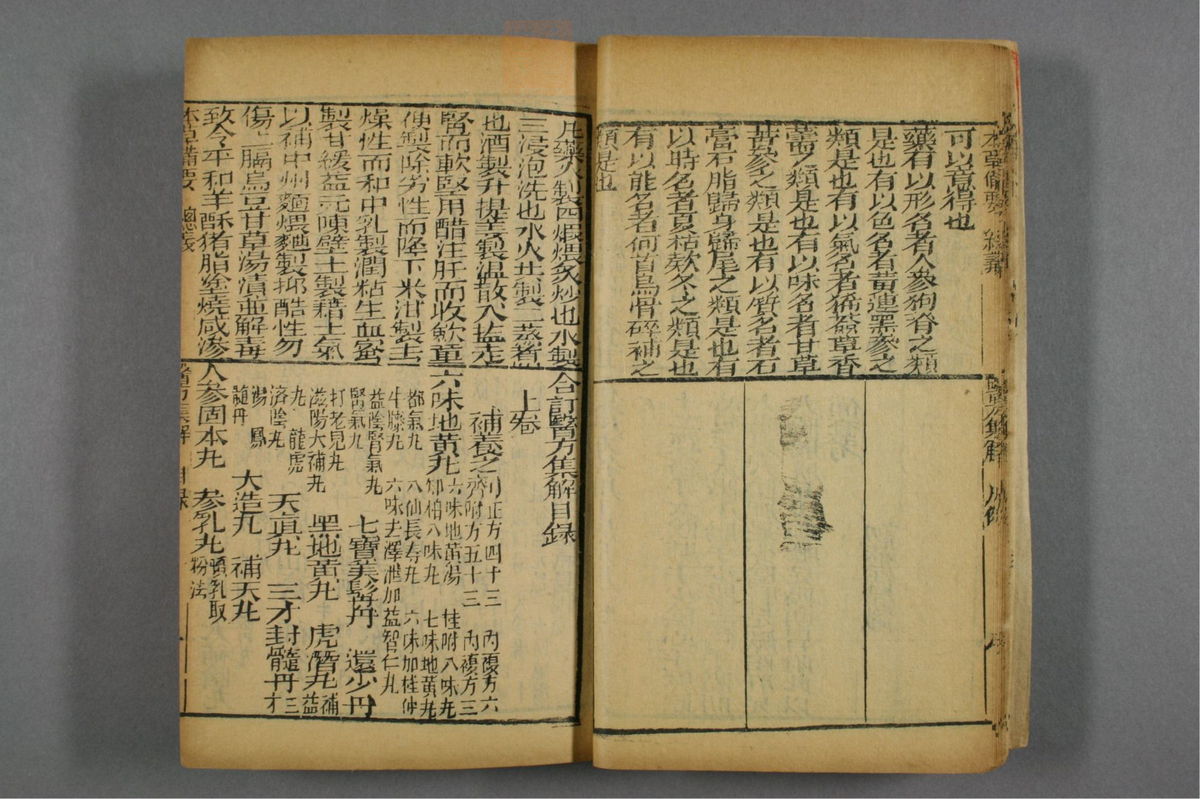 本草備要
可以意得也
藥有以形名者人參狗脊之類
是也有以色名者黃連黑參之
類是也有以氣名者豨薟草香
薷之類是也有以味名者甘草
苦參之類是也有以質名者石
膏石脂歸身歸尾之類是也有
以時名者夏枯欵冬之類是也
有以能名者何首烏骨碎補之
類是也
醫方集解
凡藥火製四煅煨炙炒也水製
三浸泡洗也水火共製二蒸煮
也酒製升提姜製温散入盐走
腎而軟堅用醋注肝而收歛童
便製除劣性而降下米泔製去
燥性而和中乳製潤粘生血蜜
製甘緩益元陳壁土製藉土氣
以補中州麵煨麯製抑酷性勿
傷上膈烏豆甘草湯漬並解毒
致令平和羊酥猪脂塗燒咸滲
本草備要 總義
合訂醫方集解目錄
上卷
補養之劑 正方四十三 內複方六
附方五十三 內複方三
六味地黃丸 六味地黃湯 桂附八味丸
知柏八味丸 七味地黃丸
都氣丸 八仙長壽丸 六味加桂仲
牛膝丸 六味去澤泄加益智仁丸
益陰腎氣丸
腎氣丸 七寶美髯丹 還少丹
打老兒丸
滋陽大補丸 黑地黃丸 虎潛丸 補益
丸 龍虎
济陰丸 天真丸 三才封髓丹 三才
髓丹
湯 鳳 大造丸 補天丸
人參固本丸 參乳丸 頓乳取粉法
醫方集解 目錄